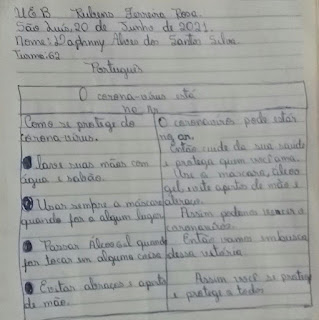 U.E.B Rubens Ferreira Rosa.
São Luís, 20 de Junho de 2021.
Nome: Daphnny Alves dos Santos Silva.
Turma: 62
Português
O corona-vírus está
no Ar
Como se protege do
corona-vírus.
lave suas mãos com
água e sabão.
Usar sempre a máscara
quando for a algum lugar
Passar Álcool Gel quando
for tocar em alguma coisa
Evitar abraços e aperto
de mão.
O coronavírus pode estar
no ar.
Então cuide da sua saúde
e proteja quem você ama.
Use a máscara, álcool
gel evite apertos de mão e
abraços.
Assim podemos vencer o
coronavírus.
Então vamos em busca
dessa vitória.
Assim você se protege
e protege a todos